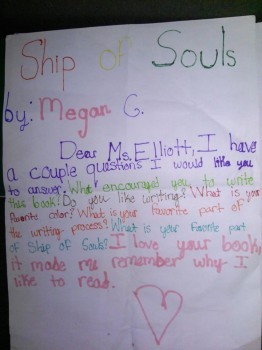 Ship of Souls
by: Megan G.
Dear Ms. Elliott, I have
a couple questions I would like you
to answer. What encouraged you to write
this book? Do you like writing? What is your
favorite color? What is your favorite part of
the writing process? What is your favorite part
of Ship of Souls? I love your book,
it made me remember why I
like to read.